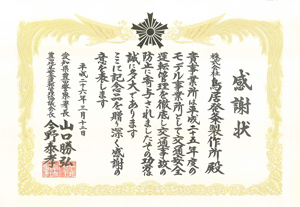 感謝状
株式会社 鳥居発条製作所 殿
貴事業所は平成二十五年度の
モデル事業所として交通安全
運転管理を徹底し交通事故の
防止に寄与されましたその功労は
誠に多大であります
ここに記念品を贈り深く感謝の
意を表します
平成二十六年三月十三日
愛知県豊田警察署長 山口勝弘